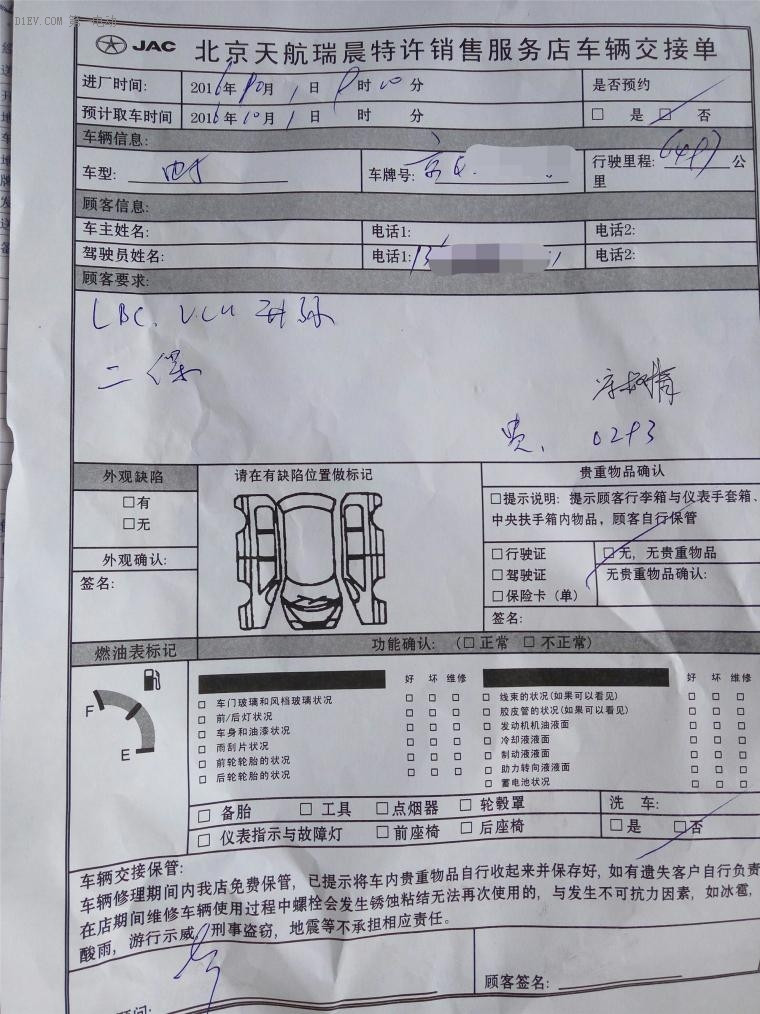 D1EV.COM 第一电动
JAC 北京天航瑞晨特许销售服务店车辆交接单
进厂时间: 2016年10月1日 9时00分 是否预约
预计取车时间 2016年10月1日 时 分 □ 是 □ 否
车辆信息:
车型: 车牌号: 京Q. 行驶里程: 6497 公里
顾客信息:
车主姓名: 电话1: 电话2:
驾驶员姓名: 电话1: 13 电话2:
顾客要求:
LBC. VCU 升级
二保
费. 0293
外观缺陷 请在有缺陷位置做标记 贵重物品确认
□有
□无
□提示说明: 提示顾客行李箱与仪表手套箱、
中央扶手箱内物品, 顾客自行保管
外观确认:
签名:
□行驶证 □无, 无贵重物品
□驾驶证 无贵重物品确认:
□保险卡(单)
签名:
燃油表标记 功能确认: (□正常 □不正常)
F
E
好 坏 维修 好 坏 维修
□ 车门玻璃和风档玻璃状况 □ □ □ □ 线束的状况(如果可以看见) □ □ □
□ 前/后灯状况 □ □ □ □ 胶皮管的状况(如果可以看见) □ □ □
□ 车身和油漆状况 □ □ □ □ 发动机机油液面 □ □ □
□ 雨刮片状况 □ □ □ □ 冷却液液面 □ □ □
□ 前轮轮胎的状况 □ □ □ □ 制动液液面 □ □ □
□ 后轮轮胎的状况 □ □ □ □ 助力转向液液面 □ □ □
□ 蓄电池状况 □ □ □
□ 备胎 □ 工具 □点烟器 □ 轮毂罩 洗 车:
□ 仪表指示与故障灯 □ 前座椅 □ 后座椅 □是 □否
车辆交接保管:
车辆修理期间内我店免费保管, 已提示将车内贵重物品自行收起来并保存好, 如有遗失客户自行负责
在店期间维修车辆使用过程中螺栓会发生锈蚀粘结无法再次使用的, 与发生不可抗力因素, 如冰雹,
酸雨, 游行示威, 刑事盗窃, 地震等不承担相应责任。
顾问: 顾客签名: